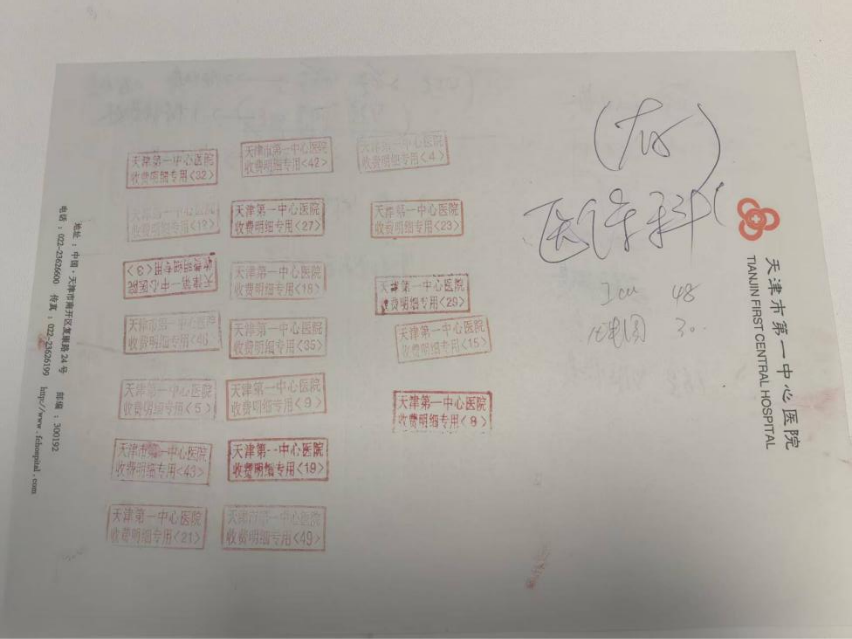 天津第一中心医院
收费明细专用<32>
天津市第一中心医院
收费明细专用<42>
天津市第一中心医院
收费明细专用<4>
天津第一中心医院
收费明细专用<17>
天津第一中心医院
收费明细专用<27>
天津第一中心医院
收费明细专用<23>
天津第一中心医院
收费明细专用<3>
天津第一中心医院
收费明细专用<18>
天津第一中心医院
费明细专用<29>
天津市第一中心医院
收费明细专用
天津第一中心医院
收费明细专用<35>
天津第一中心医院
收费明细专用<15>
天津第一中心医院
收费明细专用<5>
天津第一中心医院
收费明细专用<9>
天津第一中心医院
收费明细专用<8>
天津市第一中心医院
收费明细专用<43>
天津第一中心医院
收费明细专用<19>
天津第一中心医院
收费明细专用<21>
天津市第一中心医院
收费明细专用<49>
医保科
Icu 48
30.
天津市第一中心医院
TIANJIN FIRST CENTRAL HOSPITAL
地址：中国·天津市南开区复康路24号 邮编：300192
电话：022-23626600 传真：022-23626199 http://www.fchospital.com